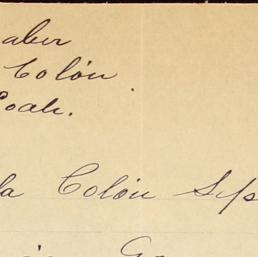 aber
Colón
Coah.
la Colón Sep